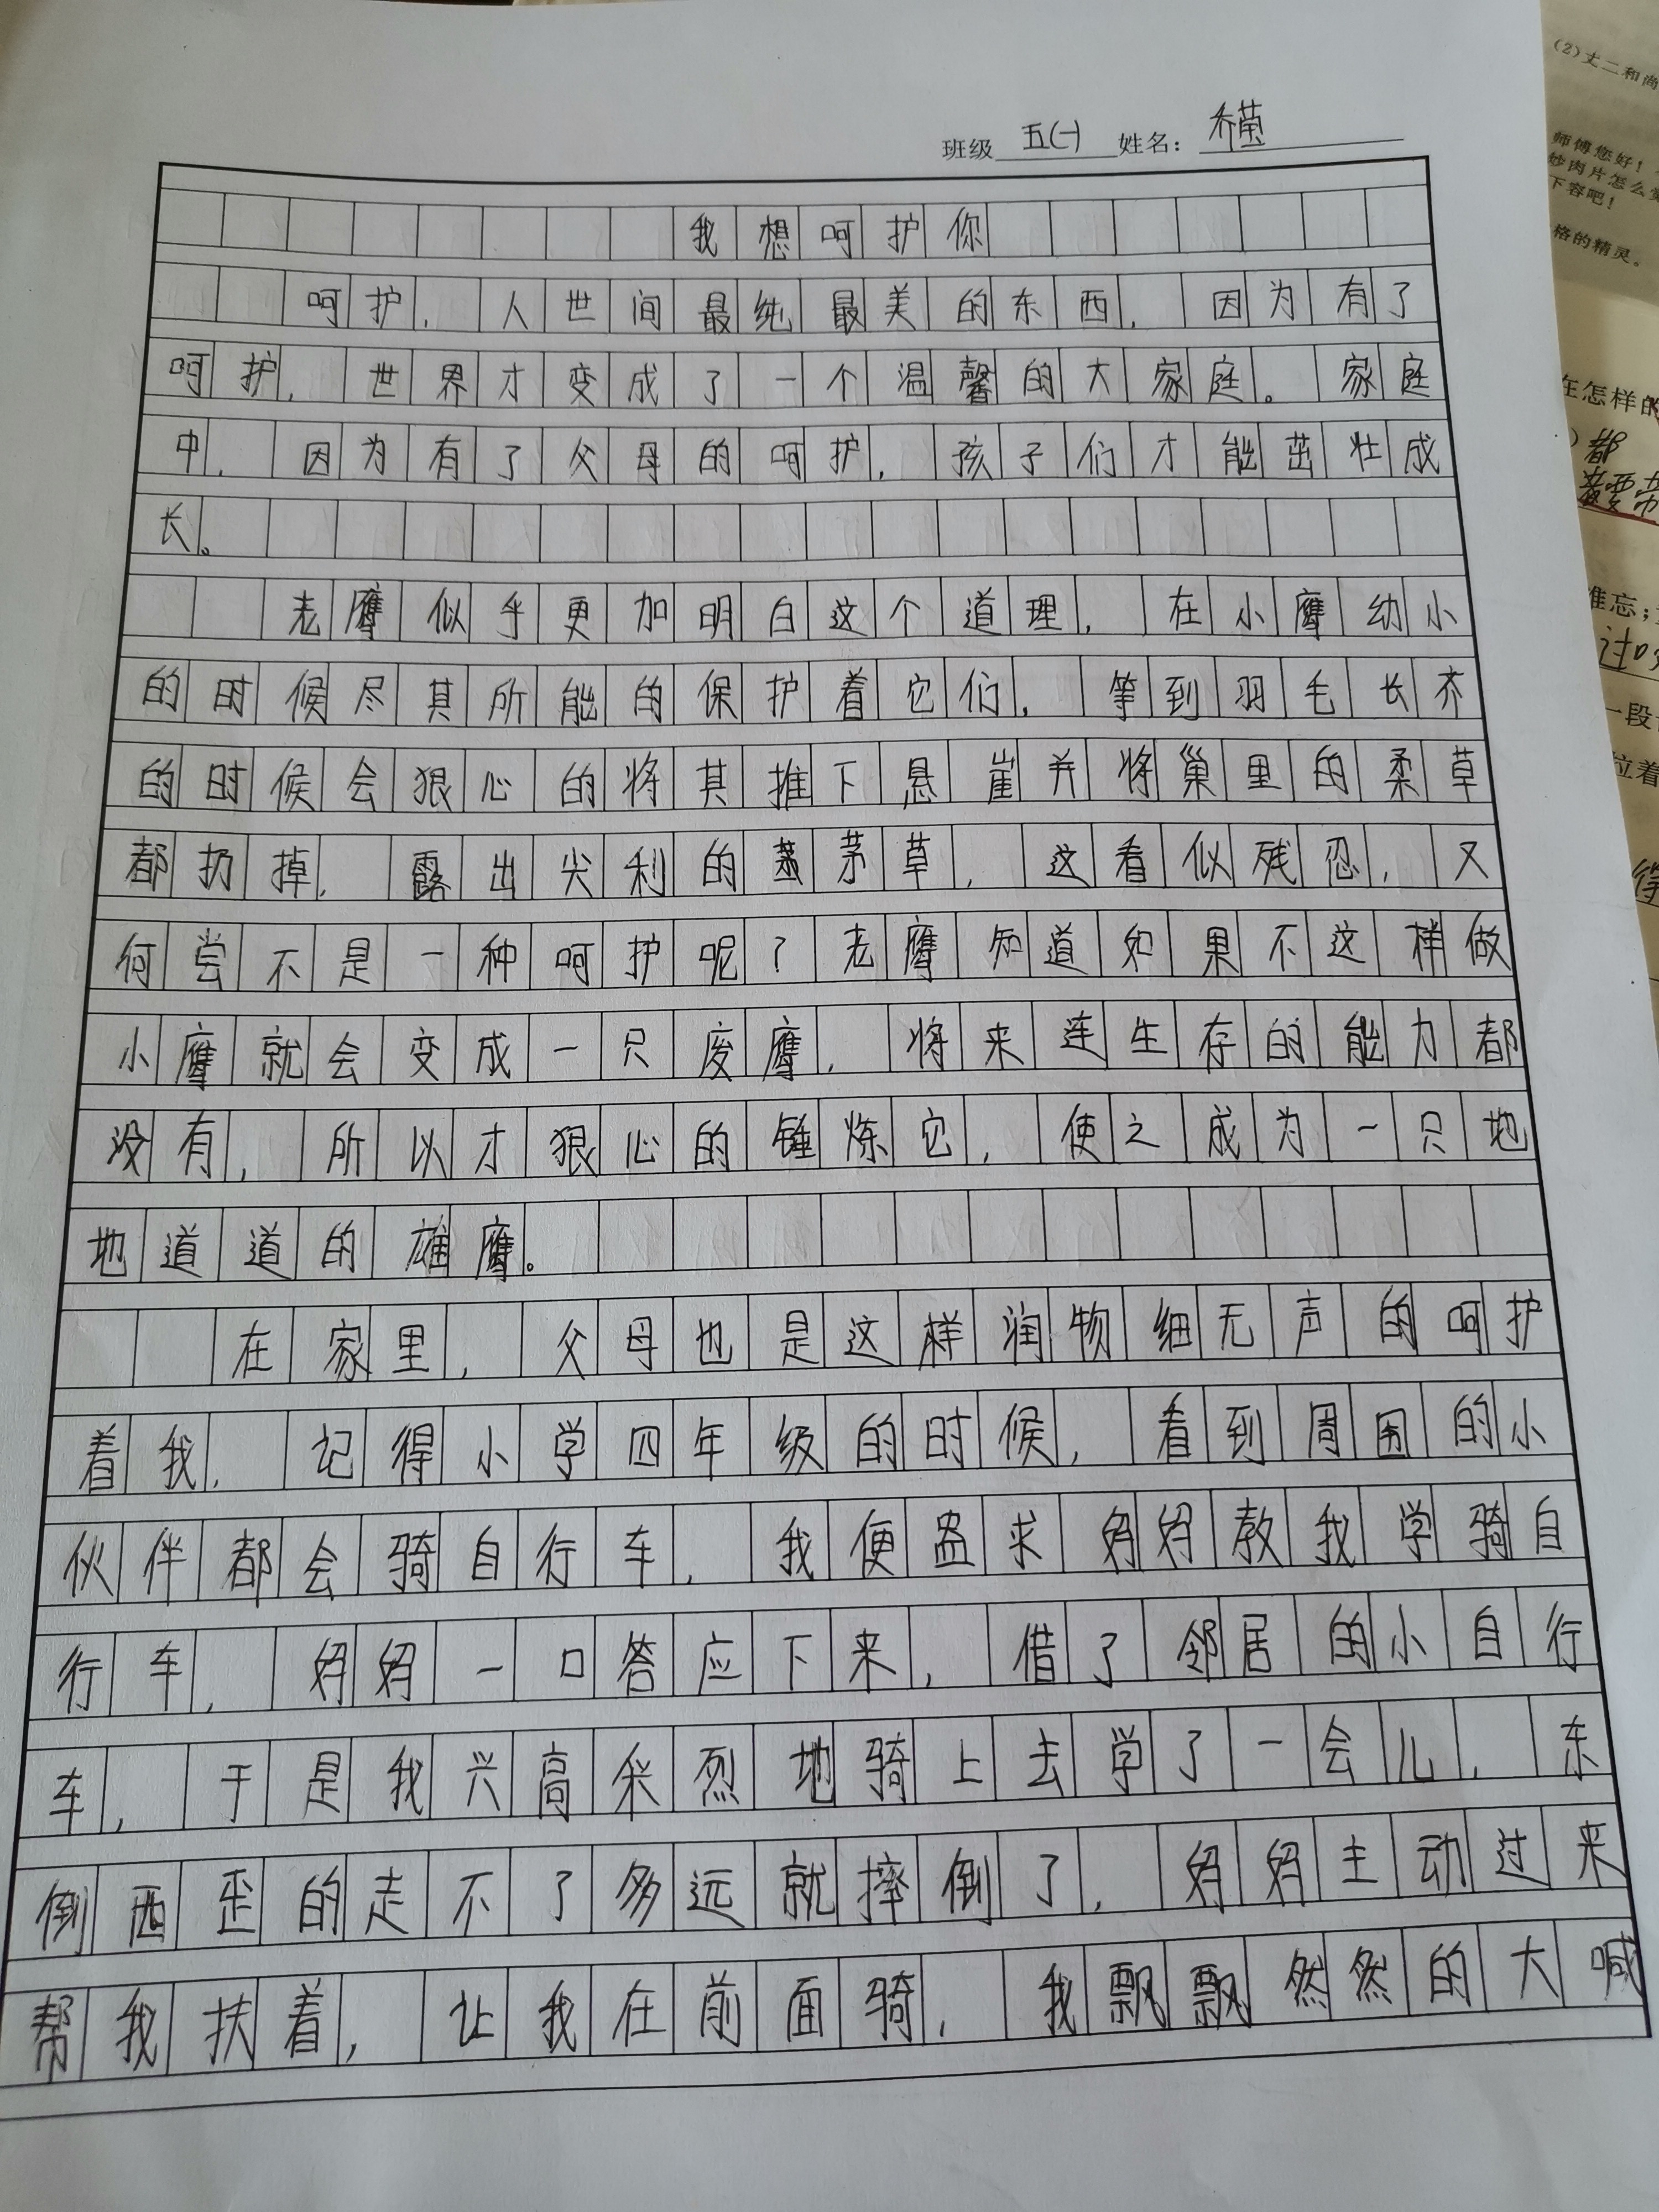 班级 五(一) 姓名： 乔菡
我想呵护你
呵护，人世间最纯最美的东西，因为有了
呵护，世界才变成了一个温馨的大家庭。家庭
中，因为有了父母的呵护，孩子们才能茁壮成
长。
老鹰似乎更加明白这个道理，在小鹰幼小
的时候尽其所能的保护着它们，等到羽毛长齐
的时候会狠心的将其推下悬崖并将巢里的柔草
都扔掉，露出尖利的茅草，这看似残忍，又
何尝不是一种呵护呢？老鹰知道如果不这样做
小鹰就会变成一只废鹰，将来连生存的能力都
没有，所以才狠心的锤炼它，使之成为一只地
地道道的雄鹰。
在家里，父母也是这样润物细无声的呵护
着我，记得小学四年级的时候，看到周围的小
伙伴都会骑自行车，我便央求妈妈教我学骑自
行车，妈妈一口答应下来，借了邻居的小自行
车，于是我兴高采烈地骑上去学了一会儿，东
倒西歪的走不了多远就摔倒了，妈妈主动过来
帮我扶着，让我在前面骑，我飘飘然然的大喊
(2)丈二和尚
师傅您好！
炒肉片怎么
下容吧！
格的精灵。
在怎样的
都
难忘；
一段
拉着